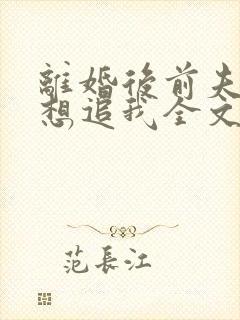 離婚後前夫
想追我全文
范長江